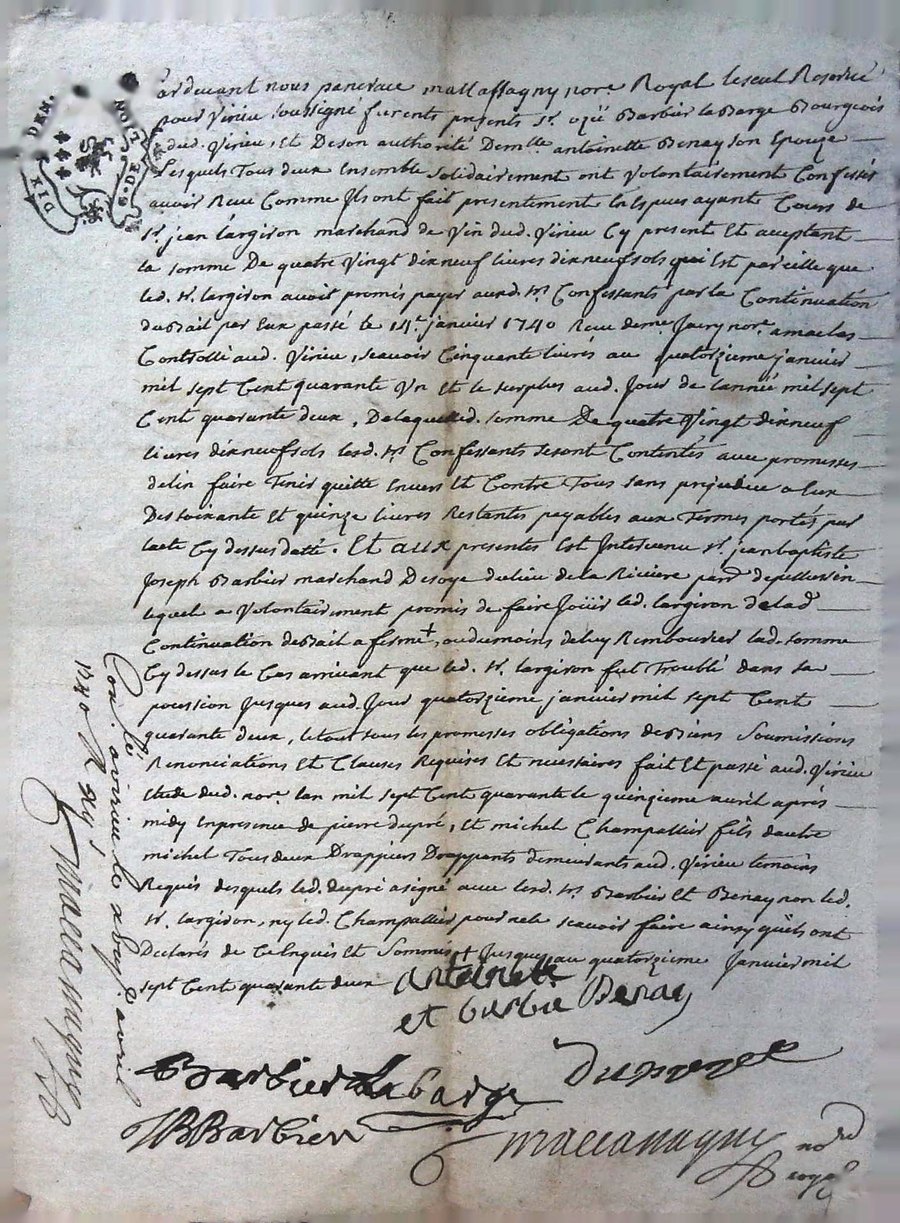 DIX DEN.
G. DE LION
ardevant nous pancrace mallassagny nore Royal le seul Reservé
pour Virieu soussigné furents presents sr. Barbier la Barge Bourgeois
dud. Virieu, et De son authorité Demlle. antoinette Benay son Epouze
Lesquels Tous deux Ensemble solidairement ont Volontairement Confessés
avoir Receu Comme Ils ont fait presentement En Espces ayante Cours de
sr. jean largiron marchand de Vin dud. Virieu Cy present Et acceptant
la somme De quatre Vingt dix neuf livres dix neuf sols qui Est pareille que
led. sr. largiron avoit promis payer auxd. srs. Confessants par la Continuation
du Bail par Eux passé le 14e. janvier 1740 Receu de me nore.
Controllé aud. Virieu, scavoir Cinquante livres au quatorzieme janvier
mil sept Cent quarante Un Et le surplus aud. Jour de lannée mil sept
Cent quarante deux, De laquelle d. somme De quatre Vingt dix neuf
livres dix neuf sols lesd. srs Confessants se sont Contentés avec promesses
de lin faire Tenir quitte Envers Et Contre Tous sans prejudice a Eux
Des soixante Et quinze livres Restantes payables aux Termes portés par
lacte Cy dessus datté. Et aux presentes Est Intervenu sr. jean baptiste
Joseph Barbier marchand De soye du lieu de la Riviere parr. de pellussin
lequel a Volontairement promis de faire Joüir led. largiron de lad.
Continuation de Bail a ferme +, ou du moins de luy Rembourser lad. somme
Cy dessus le Cas arrivant que led. sr. largiron fut Troublé dans sa
pocession Jusques aud. Jour quatorzieme janvier mil sept Cent
quarante deux, le tout sous les promesses obligations de Biens Soumissions
Renonciations Et Clauses Requises Et necessaires fait Et passé aud. Virieu
Etude dud. nore. lan mil sept Cent quarante le quinzieme avril aprés
midy En presence de pierre dupré, Et michel Champallier fils dautre
michel Tous deux Drappiers Drappants demeurants aud. Virieu temoins
Requis desquels led. dupré a signé avec lesd. srs Barbier Et Benay non led.
sr. largiron, ny led. Champallier pour ne le scavoir faire ainsy quils ont
Declarés de Ce Enquis Et Sommés + Jusques au quatorzieme Janvier mil
sept Cent quarante deux
Antoinette
et Benay
Barbier La barge
dupre
JB Barbier
nore
royal
Conlé. a virieu le avril
1740 R